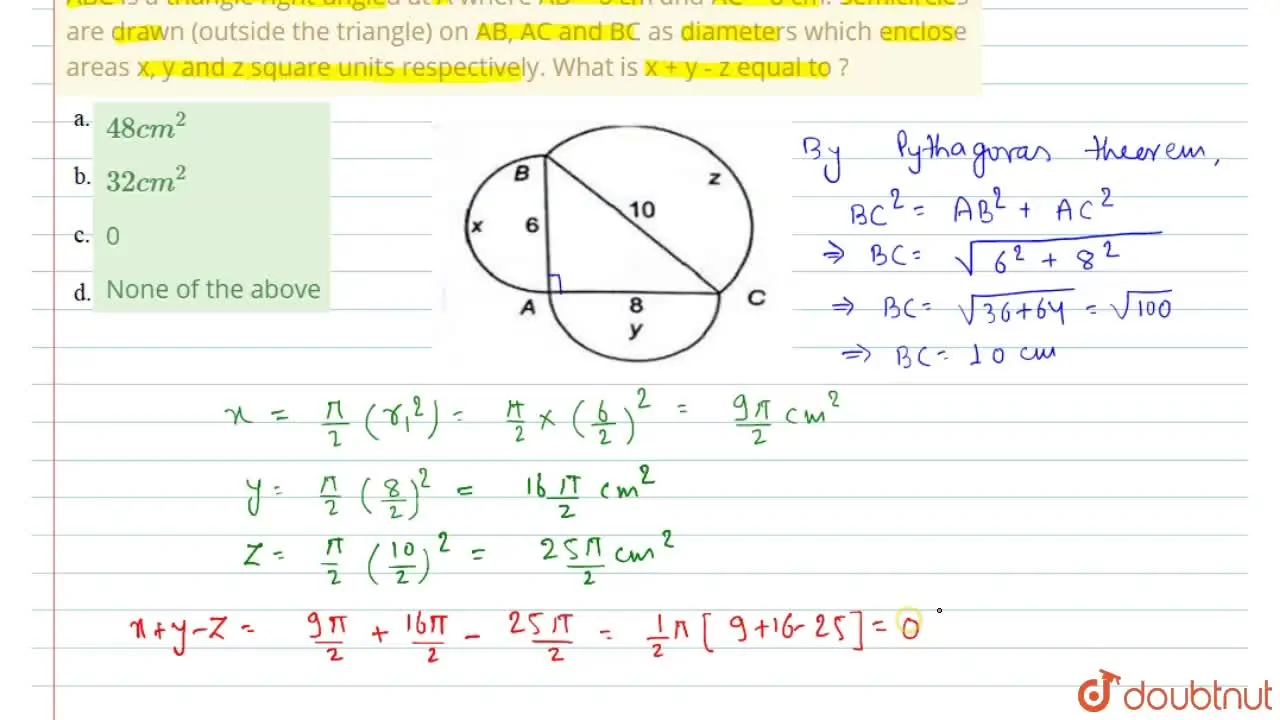 ABC is a triangle right angled at A where AB = 6 cm and AC = 8 cm. Semicircles
are drawn (outside the triangle) on AB, AC and BC as diameters which enclose
areas x, y and z square units respectively. What is x + y - z equal to ?
a. 48cm²
b. 32cm²
c. 0
d. None of the above
B
z
10
x
6
A
8
C
y
By Pythagoras theorem,
BC² = AB² + AC²
⇒ BC = √(6² + 8²)
⇒ BC = √(36+64) = √100
⇒ BC = 10 cm
x = π/2 (r₁²) = π/2 × (6/2)² = 9π/2 cm²
y = π/2 (8/2)² = 16π/2 cm²
z = π/2 (10/2)² = 25π/2 cm²
x+y-z = 9π/2 + 16π/2 - 25π/2 = 1/2 π [9+16-25] = 0
doubtnut